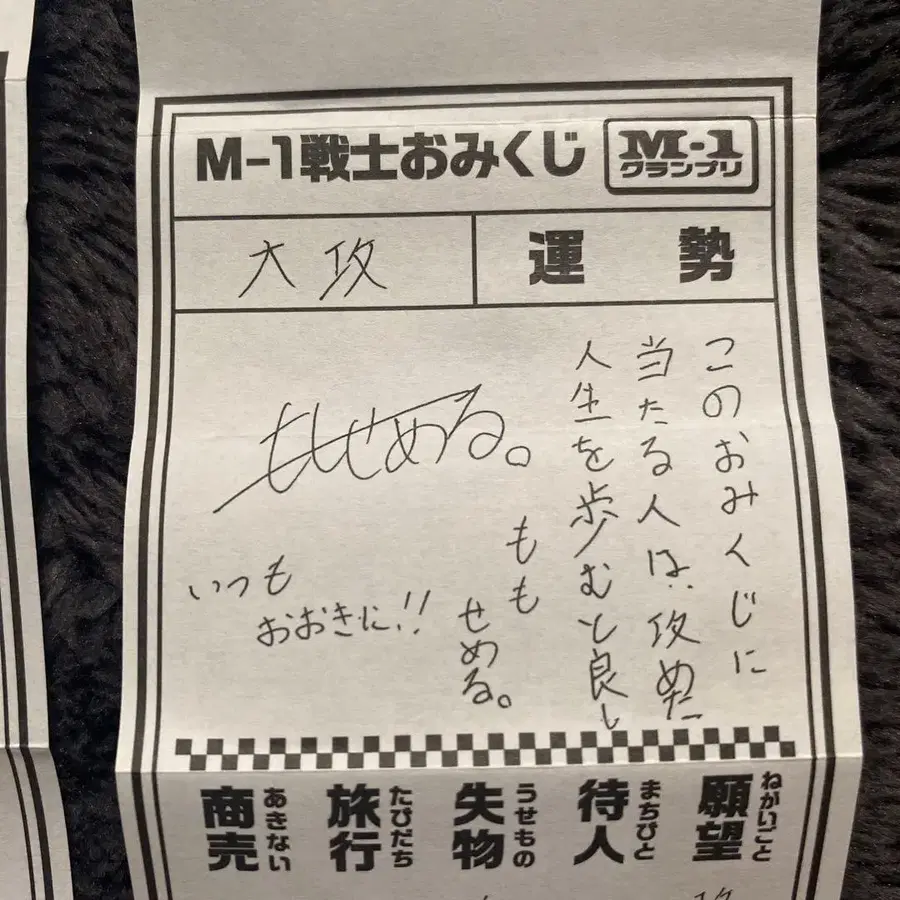 M-1戦士おみくじ
M-1
グランプリ
運勢
大攻
このおみくじに
当たる人は、攻めた
人生を歩むと良し
もも
せめる。
ももせめる。
いつも
おおきに!!
願望
ねがいごと
待人
まちびと
失物
うせもの
旅行
たびだち
商売
あきない